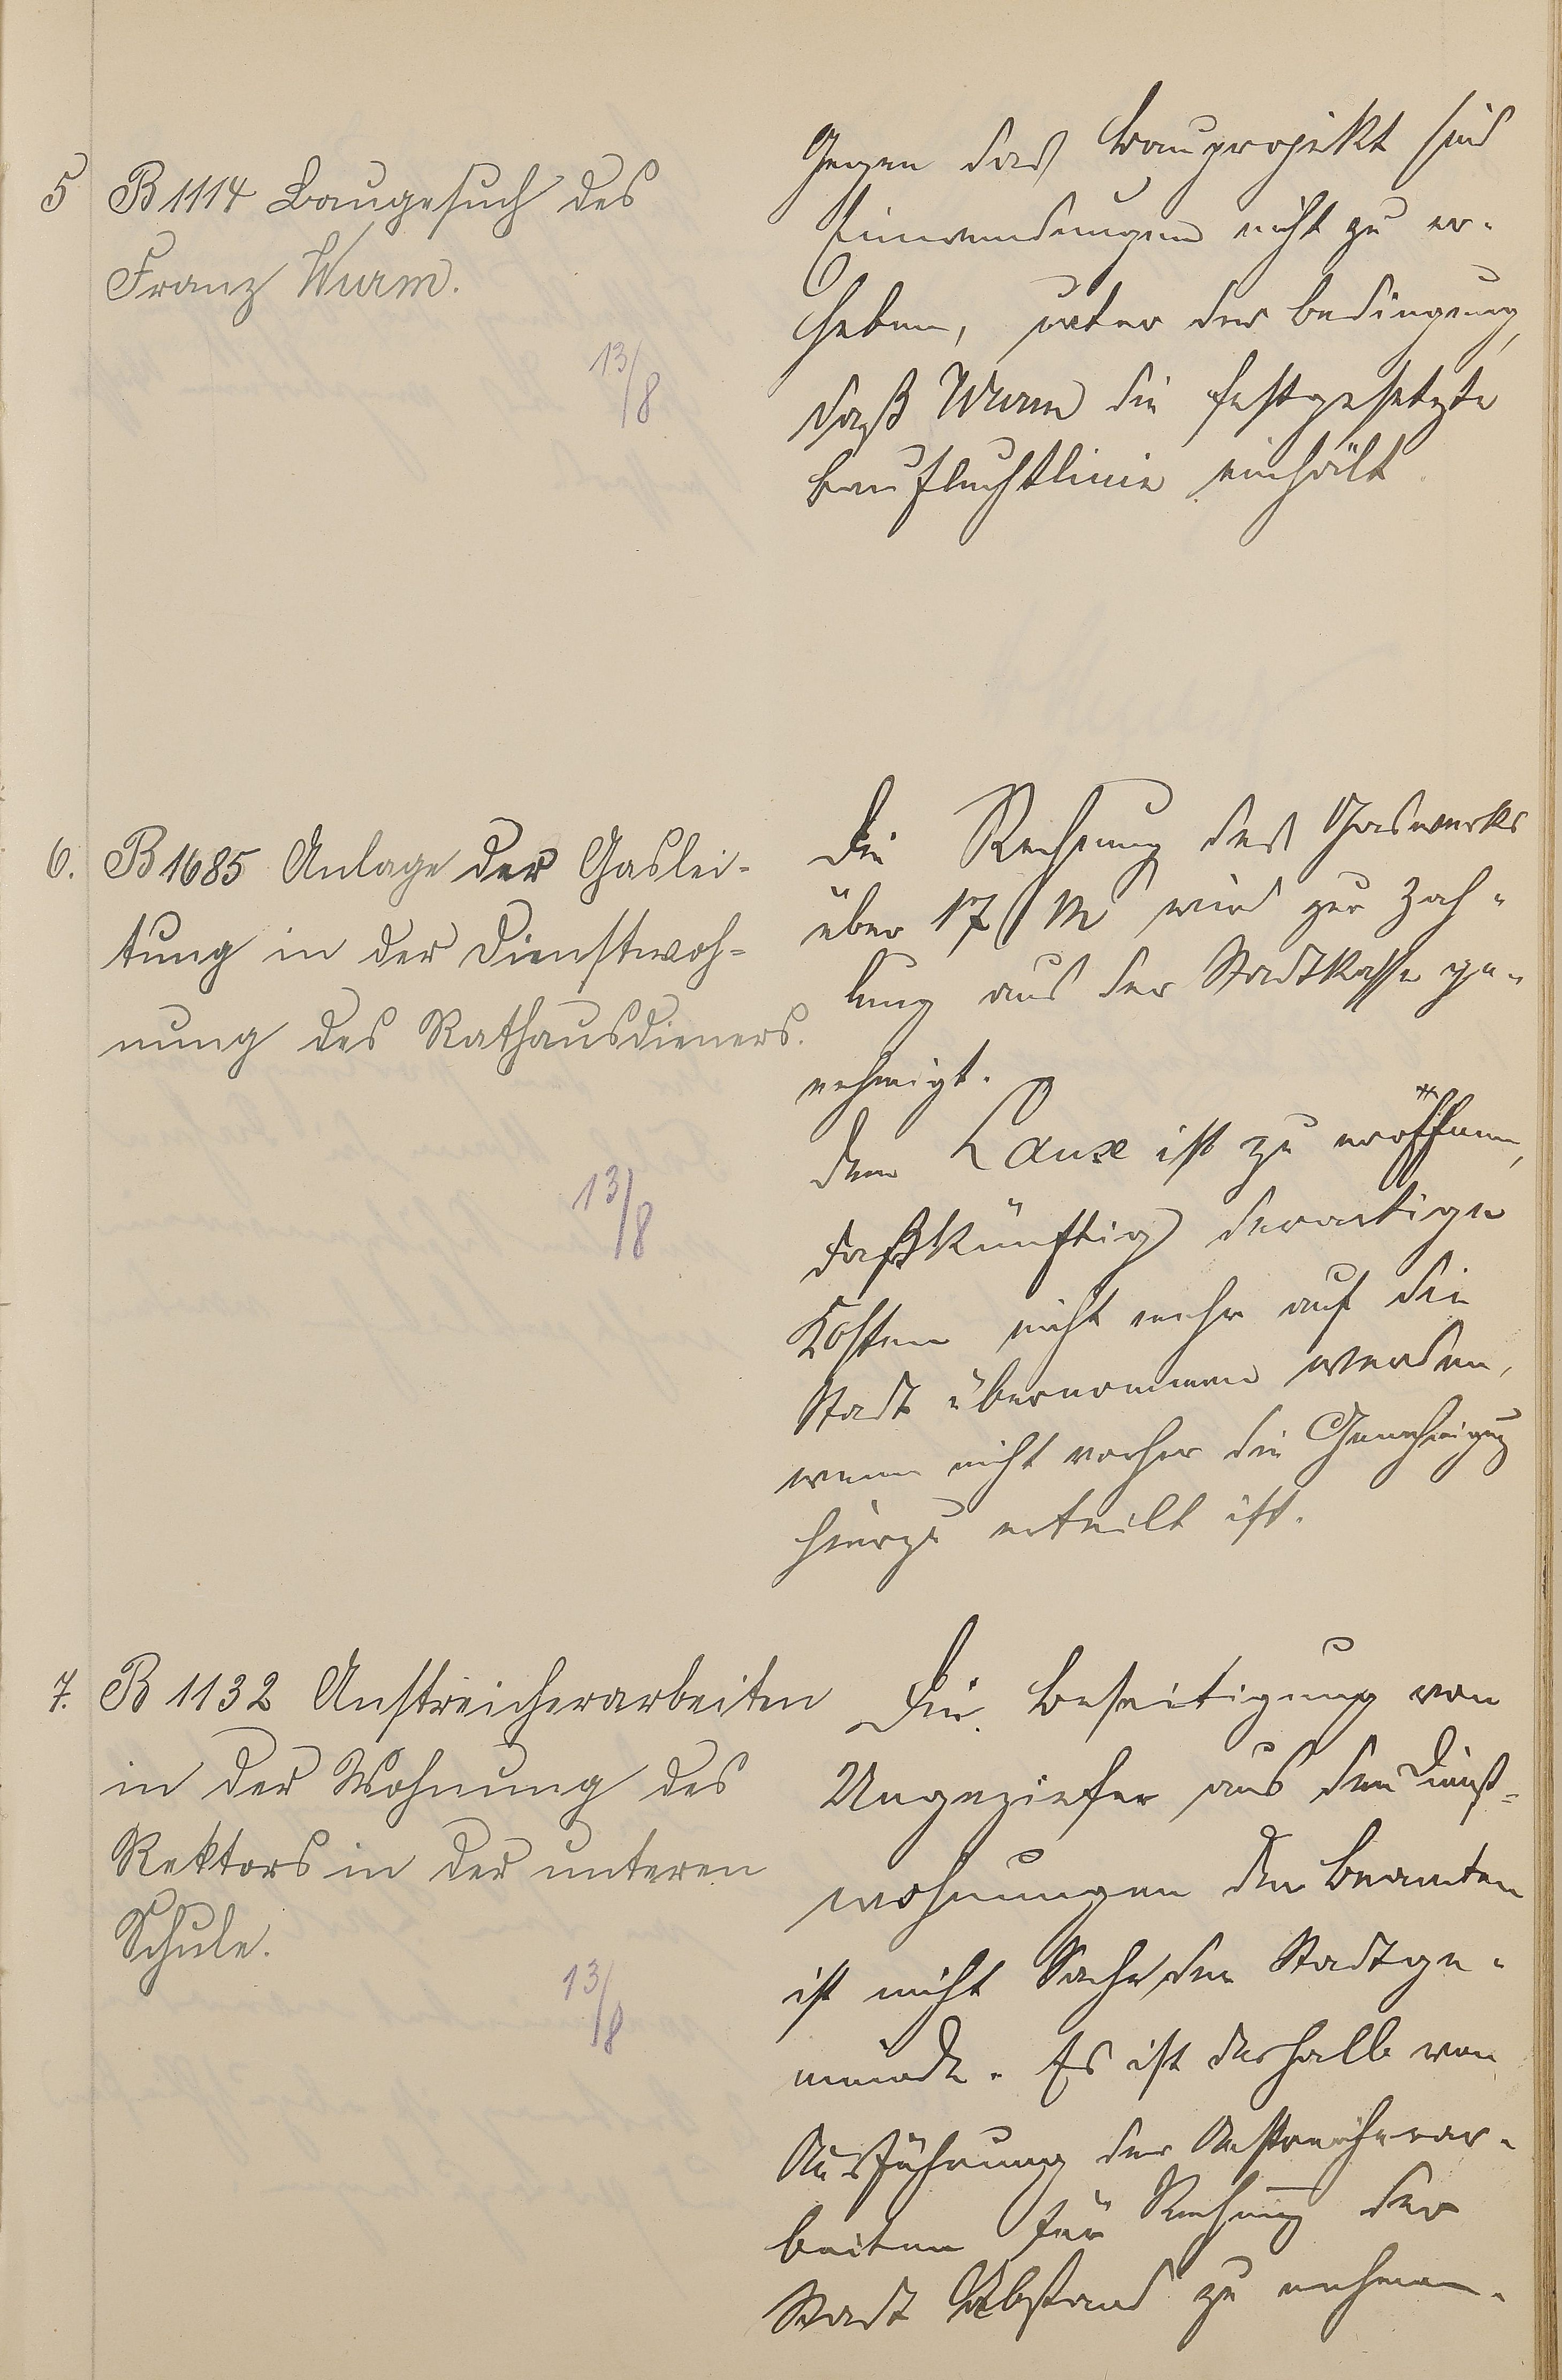 5 B 1114 Baugesuch des
Franz Wurm.
13/8
Gegen das Bauprojekt sind
Einwendungen nicht zu er-
heben, unter der Bedingung,
daß Wurm die festgesetzte
Baufluchtlinie einhält.
6. B 1685 Anlage der Gaslei-
tung in der Dienstwoh-
nung des Rathausdieners.
13/8
Die Rechnung des Gaswerks
über 17 M wird zur Zah-
lung aus der Stadtkasse ge-
nehmigt.
Dem Laux ist zu eröffnen,
daß künftig derartige
Kosten nicht mehr auf die
Stadt übernommen werden,
wenn nicht vorher die Genehmigung
hierzu erteilt ist.
7. B 1132 Anstreicherarbeiten
in der Wohnung des
Rektors in der unteren
Schule.
13/8
Die Beseitigung von
Ungeziefer aus den Dienst-
wohnungen der Beamten
ist nicht Sache der Stadtge-
meinde. Es ist deshalb von
Ausführung der Anstreicherar-
beiten für Rechnung der
Stadt Abstand zu nehmen.